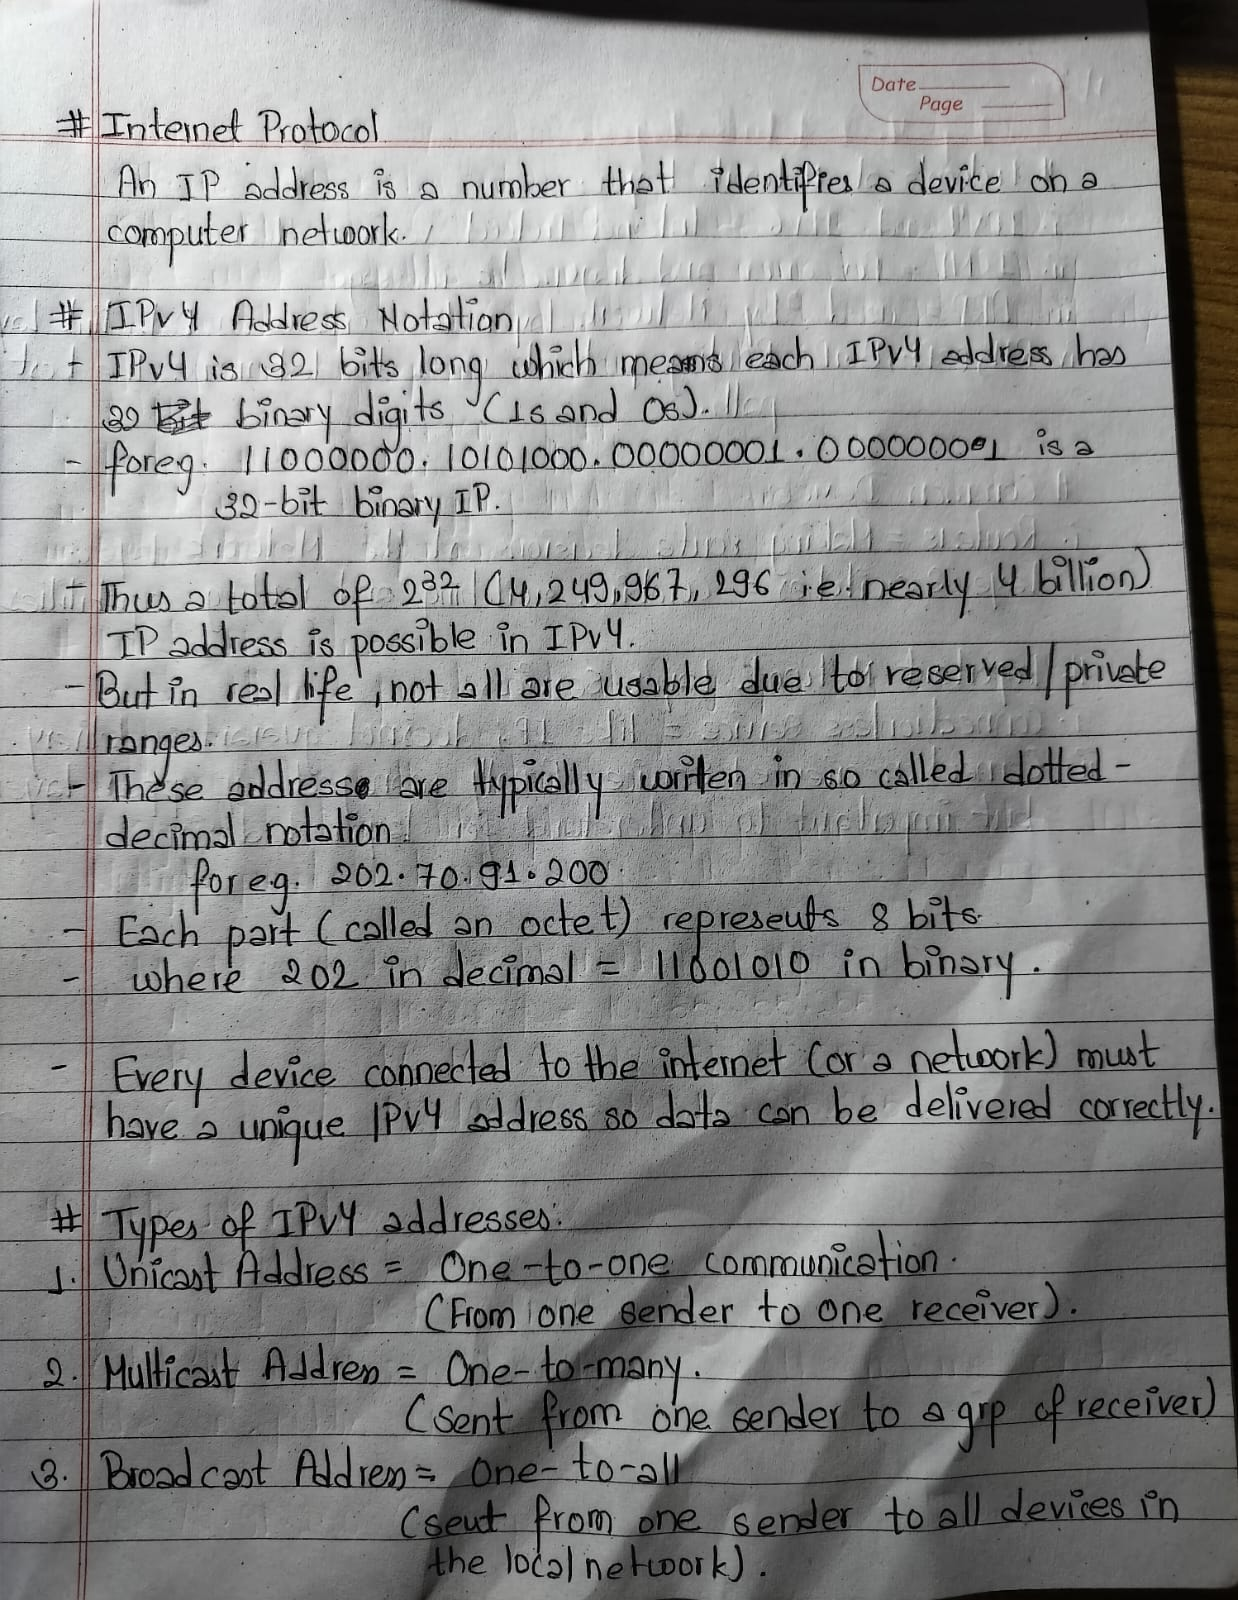 Date
Page
# Internet Protocol
An IP address is a number that identifies a device on a
computer network.
# IPv4 Address Notation
+ IPv4 is 32 bits long which means each IPv4 address has
32 binary digits (1s and 0s).
- foreg. 11000000.10101000.00000001.000000001 is a
32-bit binary IP.
- Thus a total of 2^32 (4,249,967,296 i.e. nearly 4 billion)
IP address is possible in IPv4.
- But in real life, not all are usable due to reserved/private
ranges.
- These addresse are typically writen in so called dotted-
decimal notation.
foreg. 202.70.91.200
- Each part (called an octet) represents 8 bits.
- where 202 in decimal = 11001010 in binary.
- Every device connected to the internet (or a network) must
have a unique IPv4 address so data can be delivered correctly.
# Types of IPv4 addresses:
1. Unicast Address = One-to-one communication.
(From one sender to one receiver).
2. Multicast Address = One-to-many.
(sent from one sender to a grp of receiver)
3. Broadcast Address = One-to-all
(sent from one sender to all devices in
the local network).